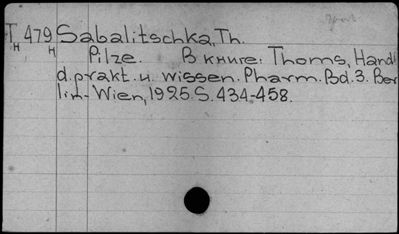 T 479 Sabalitschka, Th.
H H Pilze. В книге: Thoms, Hand
d. prakt. u. wissen. Pharm. Bd. 3. Ber
lin-Wien, 1925. S. 434-458.